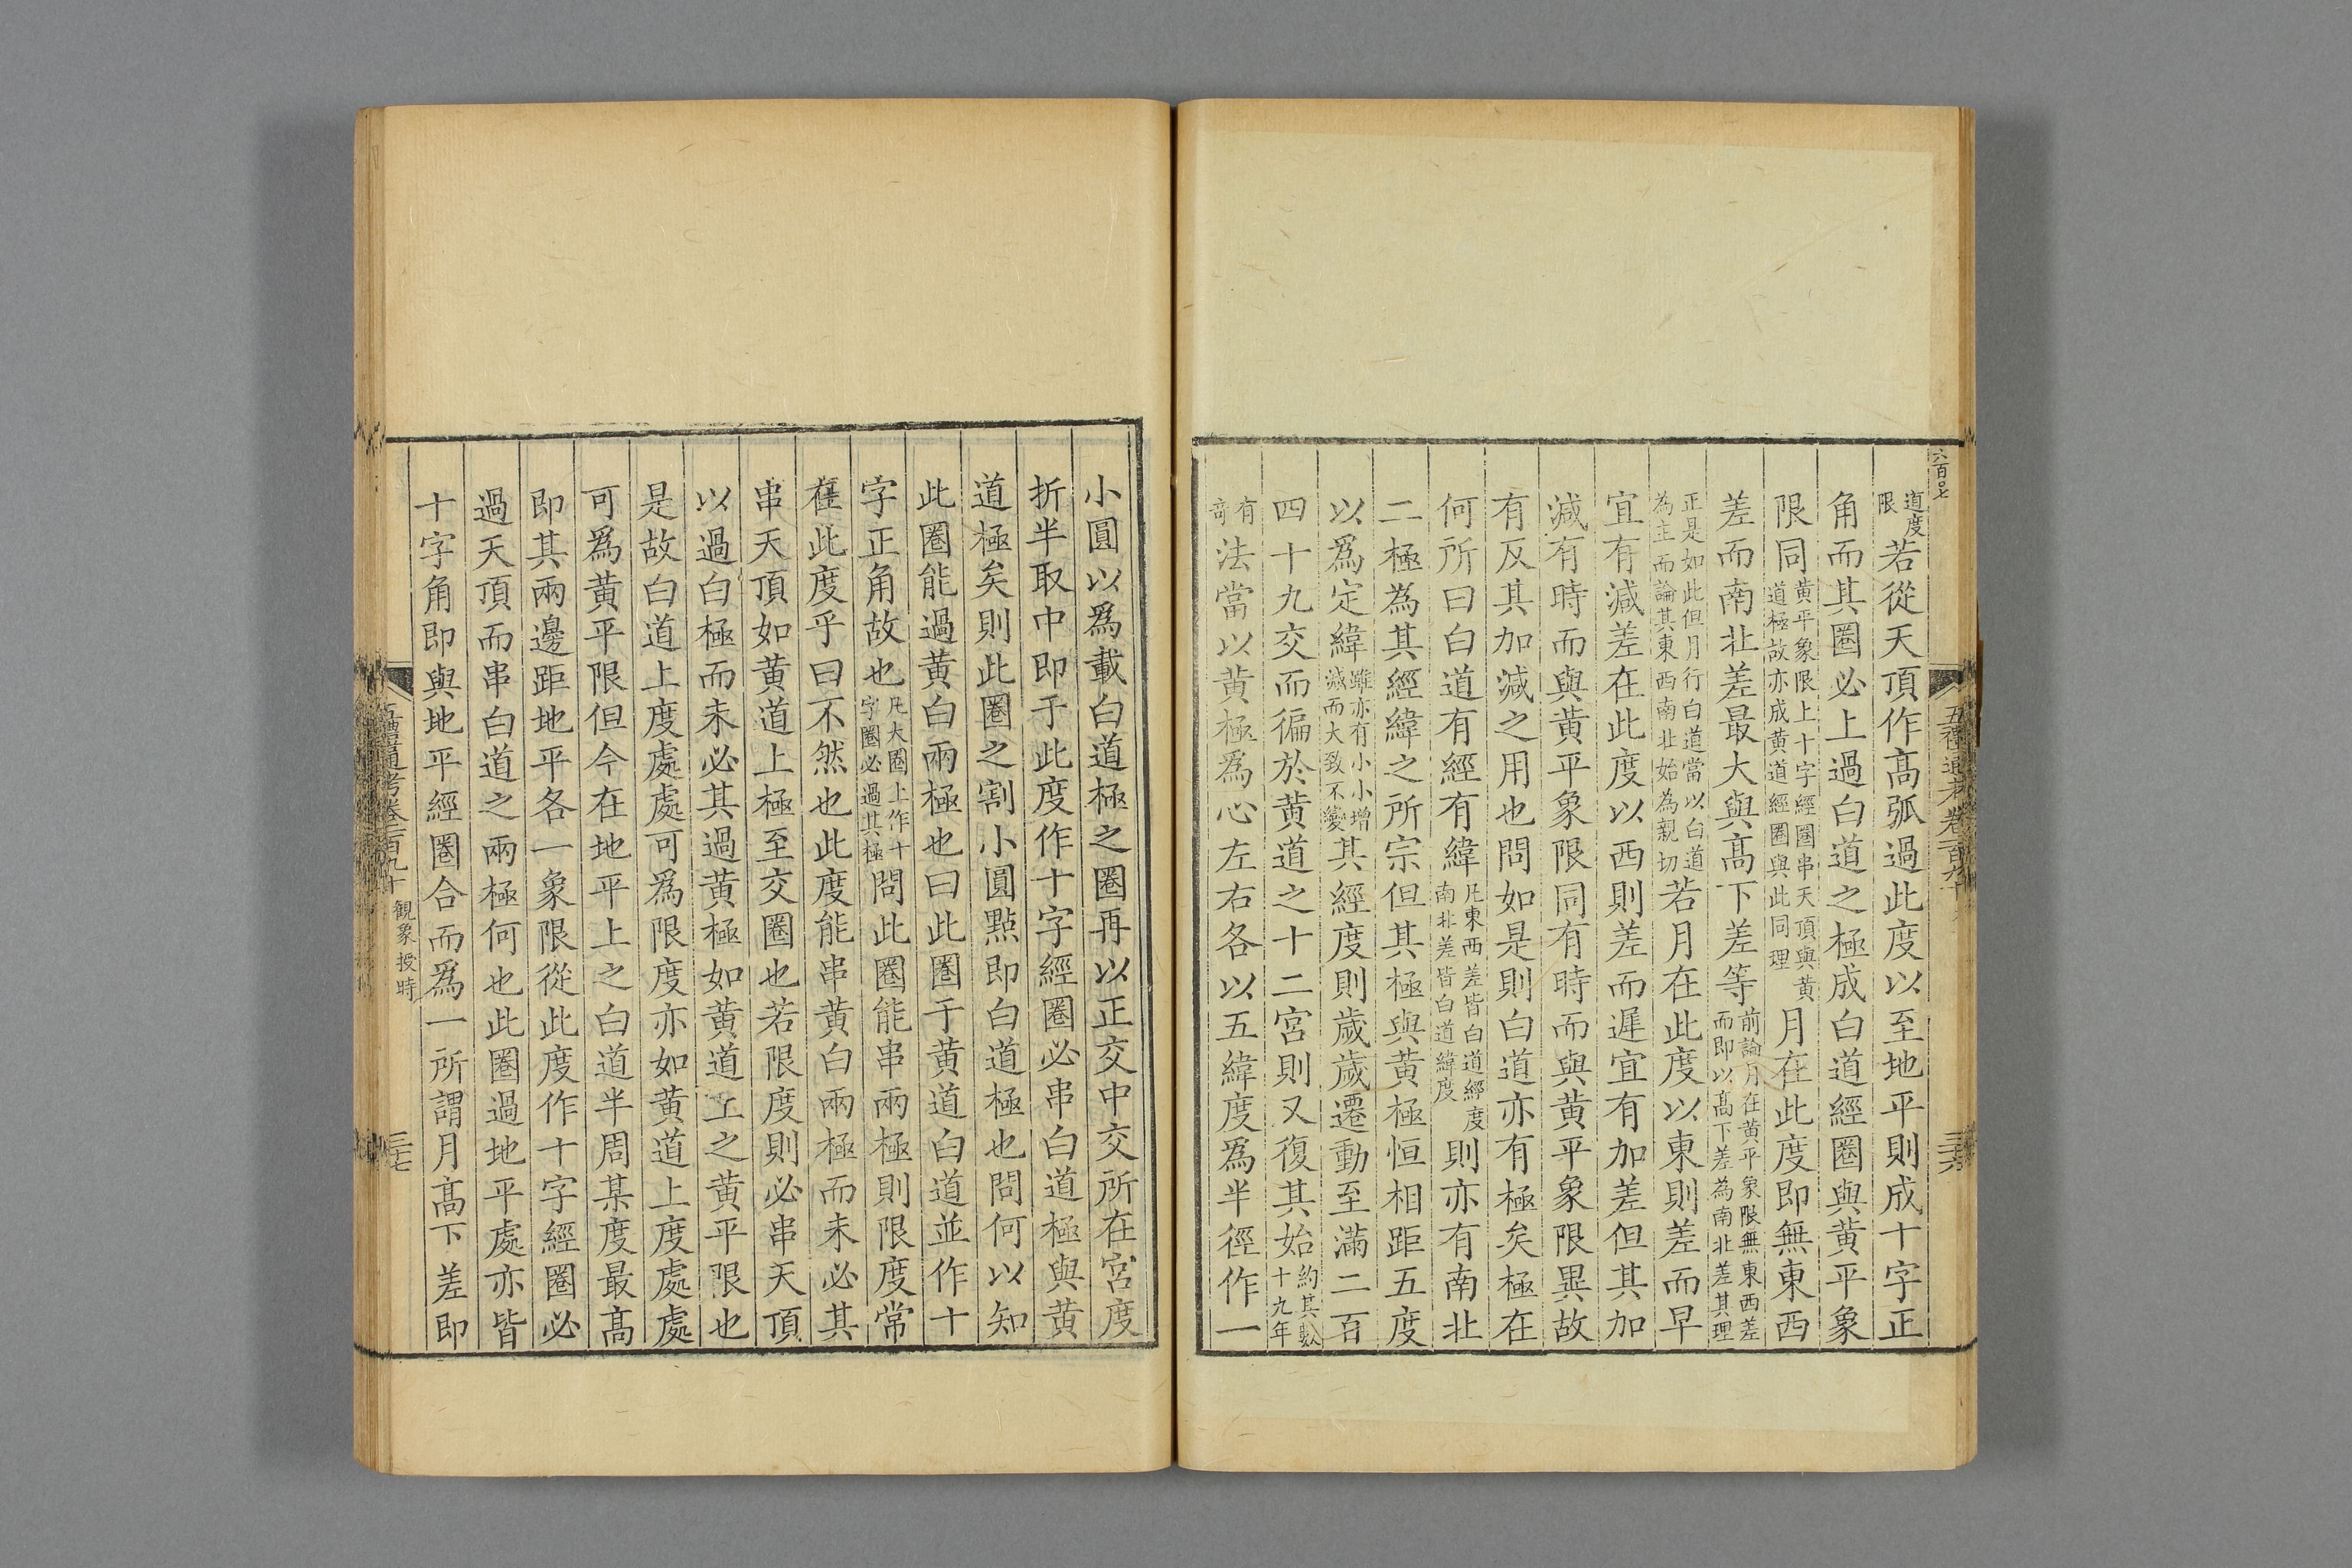 六百〇七
道度限若從天頂作高弧過此度以至地平則成十字正
角而其圈必上過白道之極成白道經圈與黃平象
限同黃平象限上十字經圈串天頂與黃道極故亦成黃道經圈與此同理月在此度即無東西
差而南北差最大與高下差等前論月在黃平象限無東西差而即以高下差為南北差其理
正是如此但月行白道當以白道為主而論其東西南北始為親切若月在此度以東則差而早
宜有減差在此度以西則差而遲宜有加差但其加
減有時而與黃平象限同有時而與黃平象限異故
有反其加減之用也問如是則白道亦有極矣極在
何所曰白道有經有緯凡東西差皆白道經度南北差皆白道緯度則亦有南北
二極為其經緯之所宗但其極與黃極恒相距五度
以爲定緯雖亦有小小增減而大致不變其經度則歲歲遷動至滿二百
四十九交而徧於黃道之十二宮則又復其始約其數十九年
有奇法當以黃極爲心左右各以五緯度爲半徑作一
小圓以爲載白道極之圈再以正交中交所在宮度
折半取中即于此度作十字經圈必串白道極與黃
道極矣則此圈之割小圓點即白道極也問何以知
此圈能過黃白兩極也曰此圈于黃道白道並作十
字正角故也凡大圈上作十字圈必過其極問此圈能串兩極則限度常
在此度乎曰不然也此度能串黃白兩極而未必其
串天頂如黃道上極至交圈也若限度則必串天頂
以過白極而未必其過黃極如黃道上之黃平限也
是故白道上度處處可爲限度亦如黃道上度處處
可爲黃平限但今在地平上之白道半周某度最高
即其兩邊距地平各一象限從此度作十字經圈必
過天頂而串白道之兩極何也此圈過地平處亦皆
十字角即與地平經圈合而爲一所謂月高下差即
觀象授時
三十七